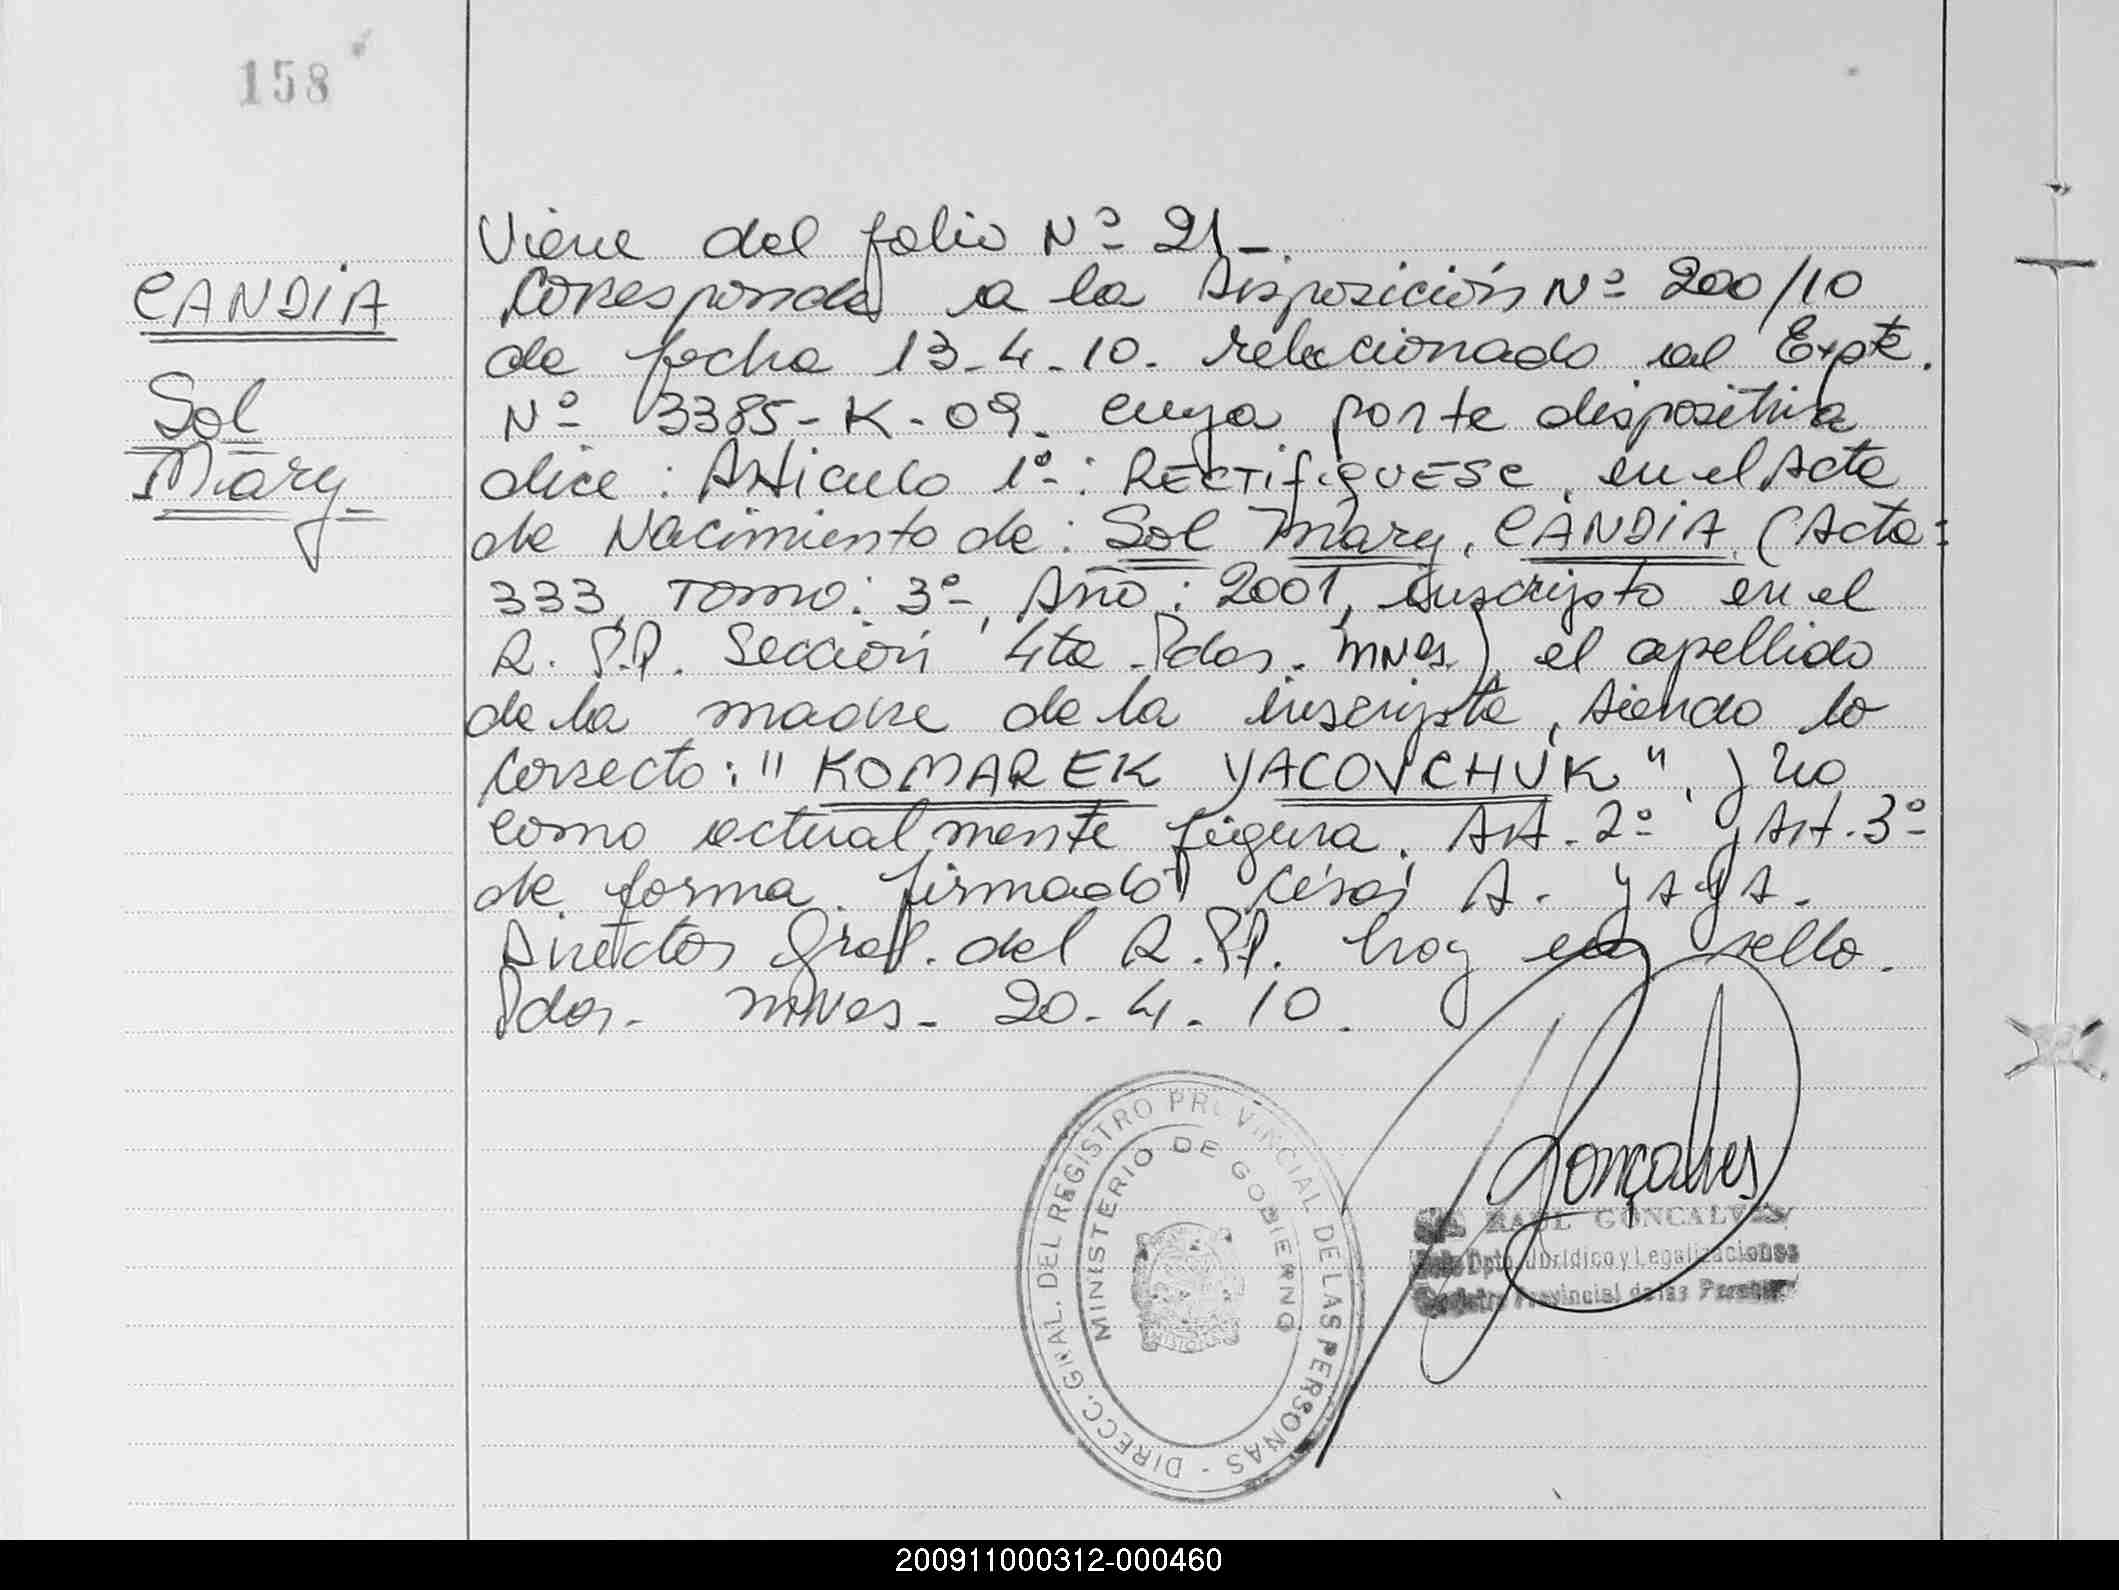 158
CANDIA
Sol
Mary
Viene del folio Nº 21 -
Corresponde a la Disposición Nº 200/10
de fecha 13-4-10. relacionado al Expte.
Nº 3385-K-09. cuya parte dispositiva
dice: Artículo 1º: RECTIFIQUESE, en el Acta
de Nacimiento de: Sol Mary, CANDIA, (Acta:
333, Tomo: 3º, Año: 2001, inscripto en el
R.P.P. Sección 4ta Pdas. Mnes.) el apellido
de la madre de la inscripta, siendo lo
correcto: "KOMAREK YACOVCHUK", y no
como actualmente figura. Art. 2º y Art. 3º
de forma. firmado César A. YAYA.
Director Gral. del R.P.P. hay un sello.
Pdas. Mnes. 20-4-10.
DIRECC. GRAL. DEL REGISTRO PROVINCIAL DE LAS PERSONAS -
MINISTERIO DE GOBIERNO
MISIONES
Gonçalves
RAUL GONCALVES
Dpto. Jurídico y Legalizaciones
Registro Provincial de las Personas
200911000312-000460